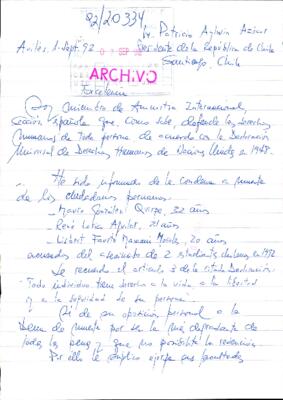 92/20334
Sr. Patricio Aylwin Azócar
Avilés 1. Sept. 92
Presidente de la República de Chile
Santiago, Chile
ARCHIVO
Excelencia
Soy miembro de Amnistía Internacional,
Sección Española que, como sabe, defiende los derechos
humanos de toda persona de acuerdo con la Declaración
Universal de Derechos Humanos de Naciones Unidas en 1948.
He sido informado de la condena a muerte
de los ciudadanos peruanos:
- Mario González Quispe, 22 años
René Aguilar, 21 años
- Mamani 20 años
acusados del asesinato de 2 estudiantes chilenos en 1992
Le recuerdo el artículo 3 de la citada Declaración:
Todo individuo tiene derecho a la vida a la libertad
y a la seguridad de su persona.
Sé de su oposición personal a la
pena de muerte por ser la más degradante de
todas las penas y que no posibilita la reinserción.
Por ello le suplico ejerza sus facultades